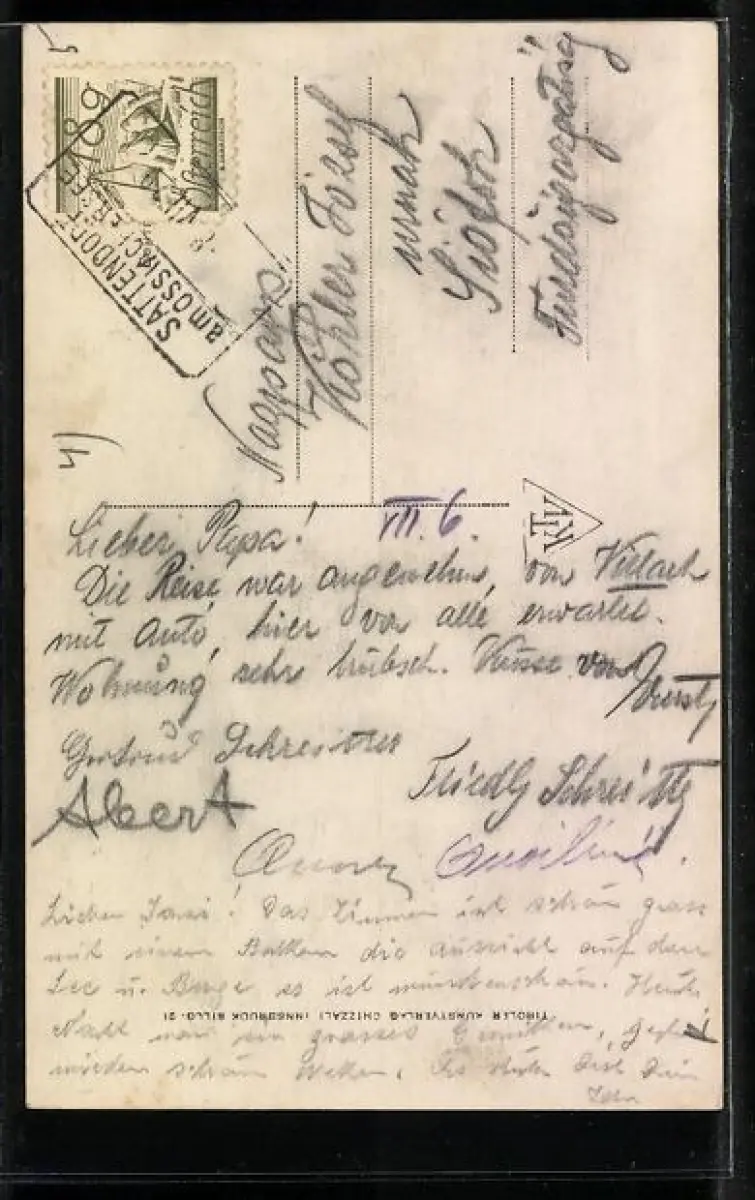 Österreich
SATTENDORF
am OSSIACHERSEE
Nagysás
Köhler József
urnak
Siófok
Fürdőigazgatóság
4)
VII. 6.
Lieber Papa!
Die Reise war angenehm, von Villach
mit Auto, hier von alle erwartet.
Wohnung sehr hübsch. Küsse von
Schreitter
Albert
Friedly Schreitter
Lieber Joszi! Das Zimmer ist schön gross
mit einem Balkon die aussicht auf den
See u. Berge es ist wunderschön. Heute
Nacht war ein grosses Gewitter,
wieder schön Wetter. Es Dich Dein
TIROLER KUNSTVERLAG CHIZZALI INNSBRUCK BILLG. 21